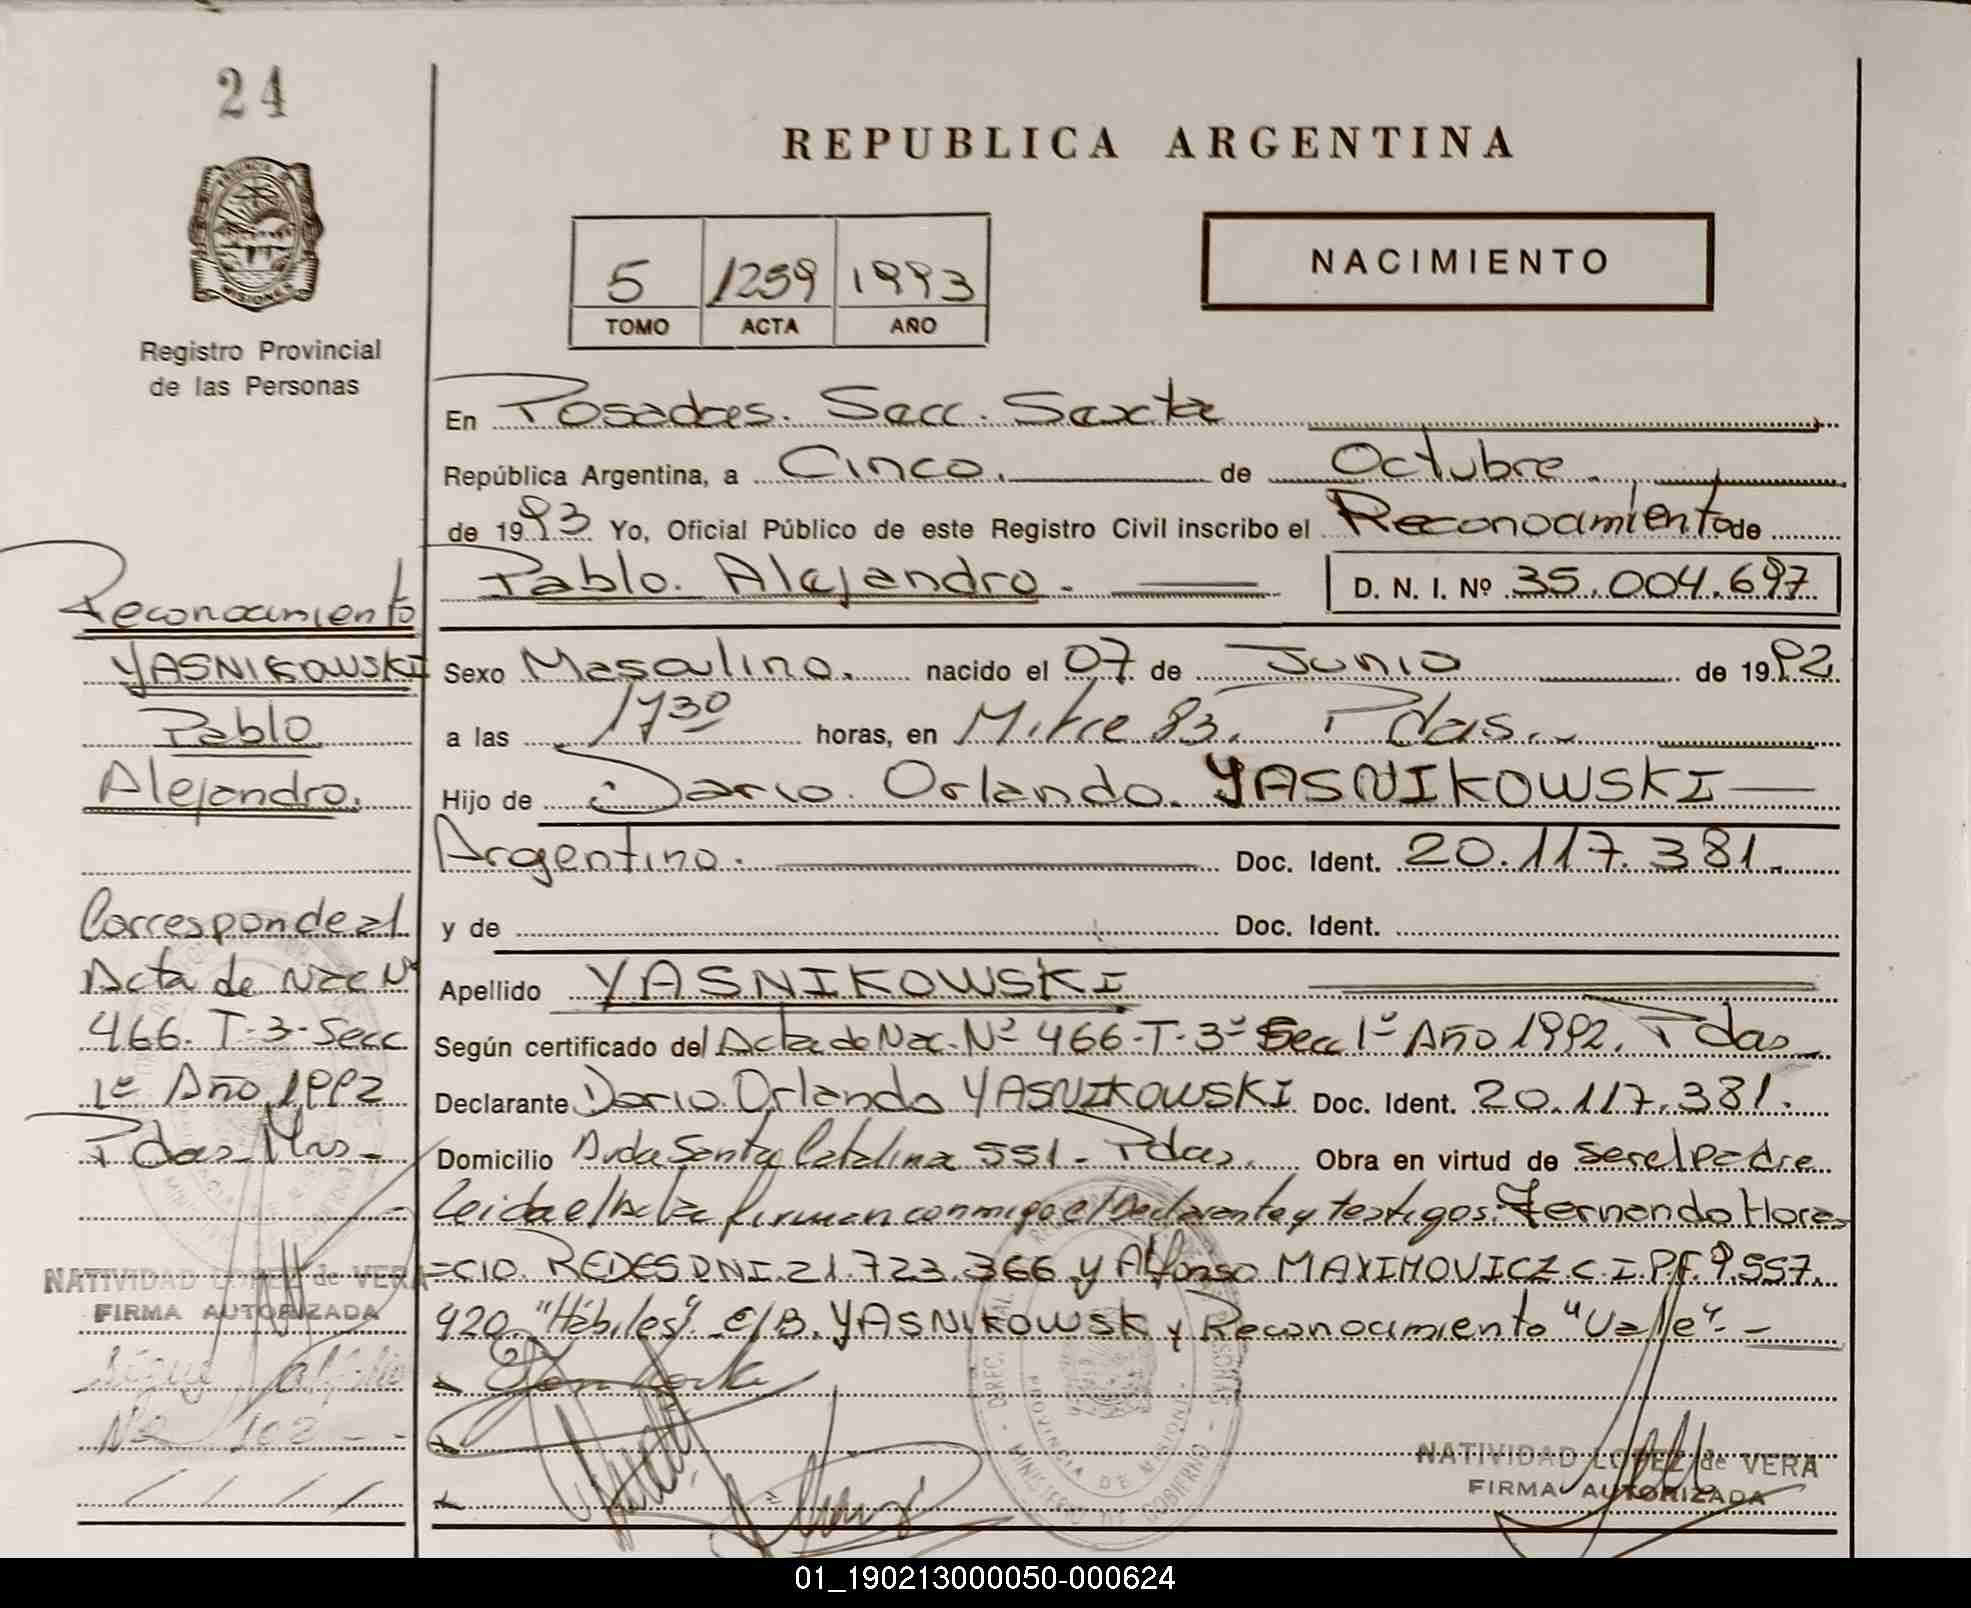 24
REPUBLICA ARGENTINA
NACIMIENTO
5 1259 1993
TOMO ACTA AÑO
MISIONES
Registro Provincial
de las Personas
En Posadas. Secc. Sexta
República Argentina, a Cinco. de Octubre.
de 1993 Yo, Oficial Público de este Registro Civil inscribo el Reconocimiento de
Pablo. Alejandro. D. N. I. Nº 35.004.697
Sexo Masculino. nacido el 07 de Junio de 1992
a las 1730 horas, en Mitre 83. Pdas.
Hijo de Dario. Orlando. YASNIKOWSKI
Argentino. Doc. Ident. 20.117.381.
y de Doc. Ident.
Apellido YASNIKOWSKI
Según certificado del Acta de Nac. Nº 466-T-3º Secc 1º Año 1992. Pdas
Declarante Dario Orlando YASNIKOWSKI Doc. Ident. 20.117.381.
Domicilio Avda Santa Catalina 551- Pdas. Obra en virtud de ser el padre
leida el Acta firman conmigo el Declarante y testigos: Fernando Hora-
=cio. REDES DNI. 21.723.366 y Alfonso MAXIMOVICZ C.I.P.F. 9.557.
920. "Hábiles". E/B. YASNIKOWSK y Reconocimiento "Valle".-
NATIVIDAD LOPEZ de VERA
FIRMA AUTORIZADA
Reconocimiento
YASNIKOWSKI
Pablo
Alejandro.
Corresponde al
Acta de Nac Nº
466. T-3- Secc
1º Año 1992
Pdas- Mns-
NATIVIDAD LOPEZ de VERA
FIRMA AUTORIZADA
Sigue al folio
Nº 102 - -
PROVINCIA DE MISIONES
MINISTERIO DE GOBIERNO
01_190213000050-000624